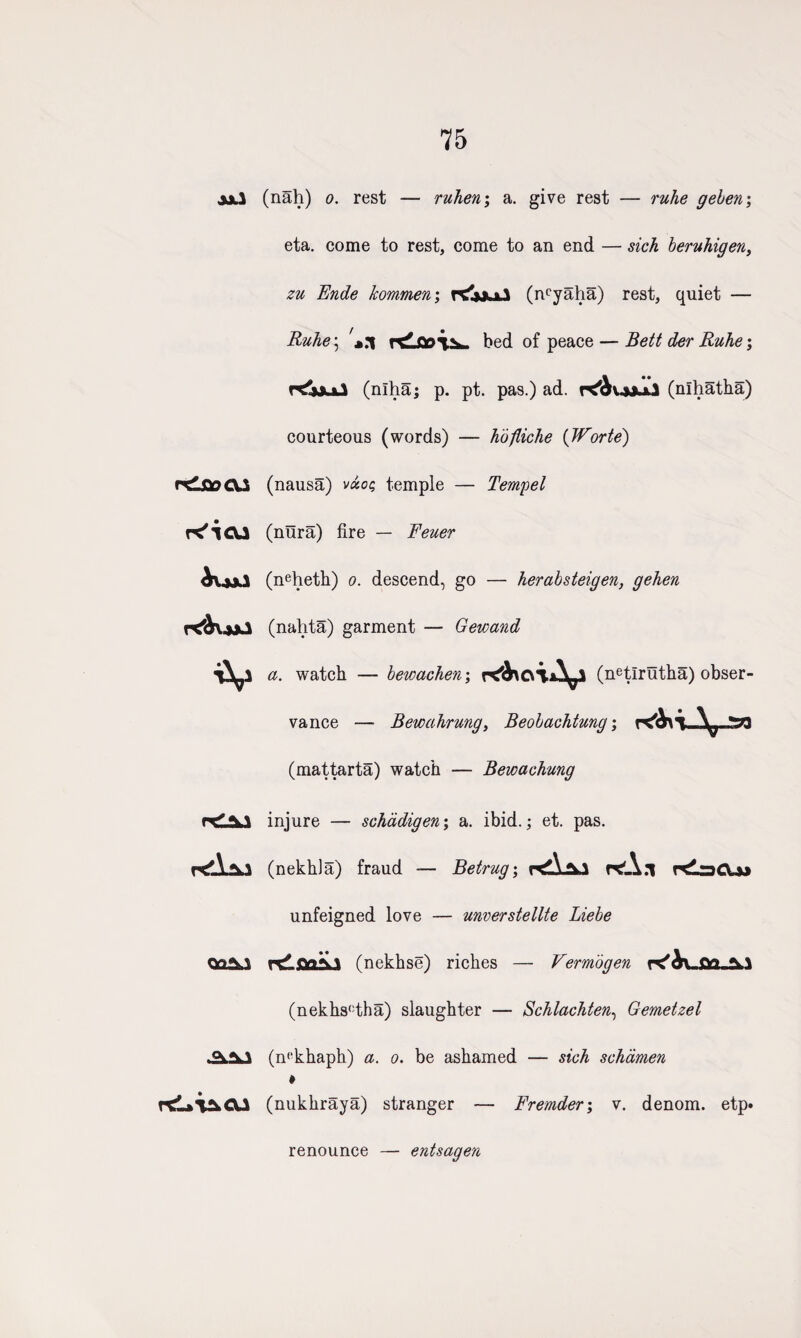 75
ܢܚ (nāḥ) o. rest — ruhen; a. give rest — ruhe geben;
eta. come to rest, come to an end — sich beruhigen,
zu Ende kommen; ܢܝܚܐ (nᵉyāḥā) rest, quiet —
Ruhe; ܥܪܣܐ bed of peace — Bett der Ruhe;
ܢܝܚܐ (nīḥā; p. pt. pas.) ad. ܢܝ̈ܚܬܐ (nīḥāthā)
courteous (words) — höfliche (Worte)
ܢܘܣܐ (nausā) νάος temple — Tempel
ܢܘܪܐ (nūrā) fire — Feuer
ܢܚܬ (nᵉḥeth) o. descend, go — herabsteigen, gehen
ܢܚܬܐ (naḥtā) garment — Gewand
ܢܛܪ a. watch — bewachen; ܢܛܝܪܘܬܐ (nᵉṭīrūthā) obser-
vance — Bewahrung, Beobachtung; ܡܛܪܬܐ
(maṭṭartā) watch — Bewachung
ܢܟܐ injure — schädigen; a. ibid.; et. pas.
ܢܟܠܐ (nekhlā) fraud — Betrug; ܚܘܒܐ ܕܠܐ ܢܟܠܐ
unfeigned love — unverstellte Liebe
ܢܟܣ ܢܟ̈ܣܐ (nekhsē) riches — Vermögen ܢܟܣܬܐ
(nekhsᵉthā) slaughter — Schlachten, Gemetzel
ܢܟܦ (nᵉkhaph) a. o. be ashamed — sich schämen
ܢܘܟܪܝܐ (nukhrāyā) stranger — Fremder; v. denom. etp.
renounce — entsagen